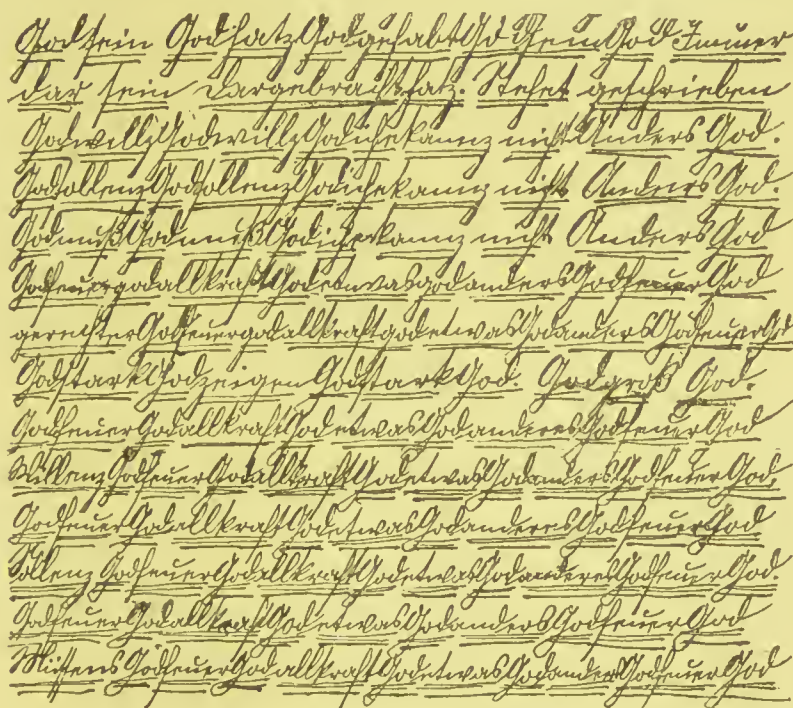 GodseinGodsatzGodgehabtGodGeinGod Immer
dar sein Dargebrachtsatz. Stehet geschrieben
GodwillzGodwillzGodichekannz nicht Anders God.
GodsollenzGodsollenzGodichekannz nicht Anders God.
GodmußGodmußGodichekannz nicht Anders God
GodfeuergodallkraftGodetwasgodandersGodfeuerGod
gerechterGodfeuergodallkraftgodetwasGodandersGodfeuerGod
GodstarkGodzeigenGodstarkGod. Godgroß God.
GodfeuerGodallkraftGodetwasGodanderesGodfeuerGod
WillenzGodfeuerGodallkraftGodetwasGodandersGodfeuerGod.
GodfeuerGodallkraftGodetwasGodanderesGodfeuerGod
SollenzGodfeuerGodallkraftGodetwasGodanderesGodfeuerGod.
GodfeuerGodallkraftGodetwasGodandersGodfeuerGod
MüssensGodfeuerGodallkraftGodetwasGodanderGodfeuerGod